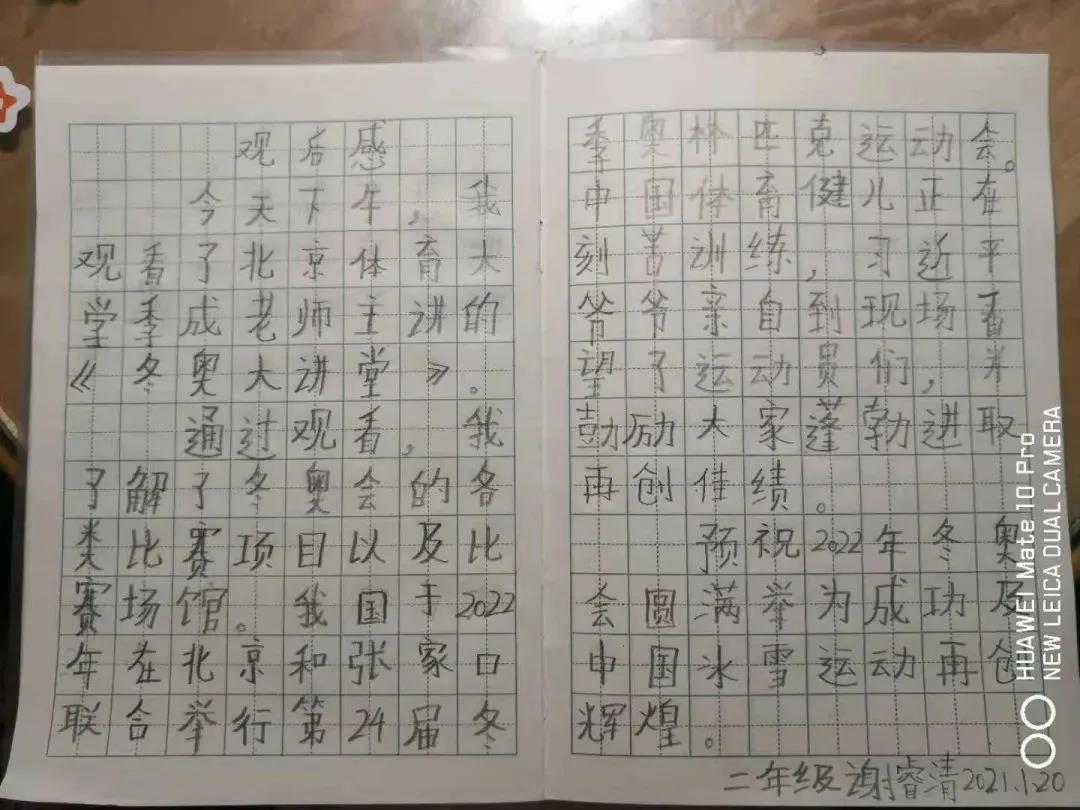 观后感
今天下午，我
观看了北京体育大
学季成老师主讲的
《冬奥大讲堂》。
通过观看，我
了解了冬奥会的各
类比赛项目以及比
赛场馆。我国于2022
年在北京和张家口
联合举行第24届冬
季奥林匹克运动会。
中国体育健儿正在
刻苦训练，习近平
爷爷亲自到现场看
望了运动员们，并
鼓励大家蓬勃进取
再创佳绩。
预祝2022年冬奥
会圆满举为成功及
中国冰雪运动再创
辉煌。
二年级谢睿清2021.1.20
HUAWEI Mate 10 Pro
NEW LEICA DUAL CAMERA